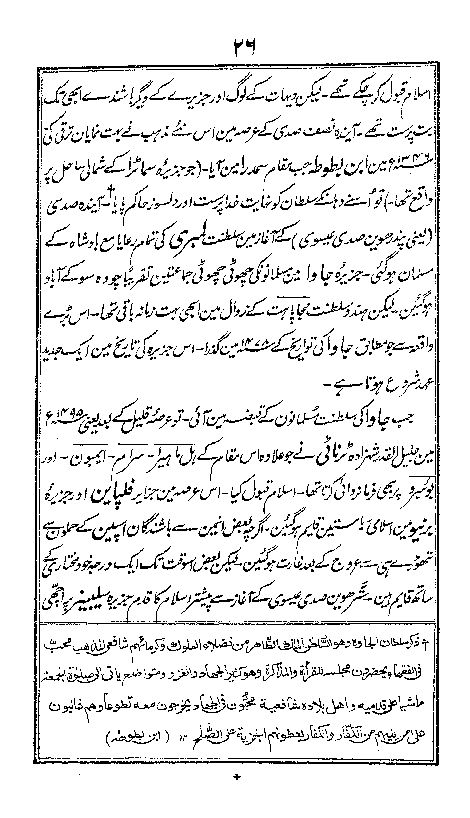 ۲۶
اسلام قبول کر چکے تھے ۔ لیکن دیہات کے لوگ اور جزیرے کے دیگر باشندے ابھی تک
بت پرست تھے ۔ آیندہ نصف صدی کے عرصہ مین اس نئے مذہب نے بہت نمایان ترقی کی
۱۳۴۶ء مین ابن بطوطہ جب بمقام سمدرا مین آیا ۔ (جو جزیرہ سماٹرا کے شمالی ساحل پر
واقع تھا ۔) تو اُسنے وہانکے سلطان کو نہایت خدا پرست اور دلسوز حاکم پایا † آیندہ صدی
(یعنی پندرھوین صدی عیسوی) کے آغاز مین سلطنت لمبری کی تمام رعایا مع بادشاہ کے
مسلمان ہو گئی ۔ جزیرہ جاوا مین مسلمانونکی چھوٹی چھوٹی جماعتین تقریباً چودہ سو کے آباد
ہو گئین ۔ لیکن ہندو سلطنت مجاپاہت کے زوال مین ابھی بہت زمانہ باقی تھا ۔ اس بڑے
واقعہ سے جو مطابق جاوا کی تواریخ کے ۱۴۷۸ء مین گذرا ۔ اس جزیرہ کی تاریخ مین ایک جدید
عہد شروع ہوتا ہے ۔
جب جاوا کی سلطنت مسلمانون کے قبضہ مین آئی ۔ تو عرصہ قلیل کے بعد یعنی ۱۴۹۵ء
مین جلیل القدر شہزادہ ٹرناٹی نے جو علاوہ اس مقام کے بل ماہیرا ۔ سرام ۔ ایمبون ۔ اور
بوئیرو پر بھی فرمانروائی کرتا تھا ۔ اسلام قبول کیا ۔ اس عرصہ مین جزایر فلپاین اور جزیرہ
برنیو مین اسلامی ریاستین قایم ہو گئین ۔ اگرچہ بعض انمین سے باشندگان اسپین کے حملون سے
تھوڑے ہی سے عروج کے بعد غارت ہو گئین ۔ لیکن بعض اسوقت تک ایک درجہ خود مختاری کے
ساتھ قایم ہین ۔ سترھوین صدی عیسوی کے آغاز سے پیشتر اسلام کا قدم جزیرہ سلیبیز پر ابھی
† ذکر سلطان الجاوہ وھو السلطان الملک الظاھر من فضلاء الملوک وکرمائھم شافعی المذھب محب
فی الفقھاء یحضرون مجلسہ للقرأۃ والمذاکرۃ وھو کثیر الجھاد والغزو ومتواضع یاتی الی صلوۃ الجمعۃ
ماشیا علی قدمیہ واھل بلادہ شافعیۃ محبون فی الجھاد یخرجون معہ تطوعا وھم غالبون
علی من یلیھم من الکفار والکفار یعطونھم الجزیۃ علی الصلح ،، (ابن بطوطہ)